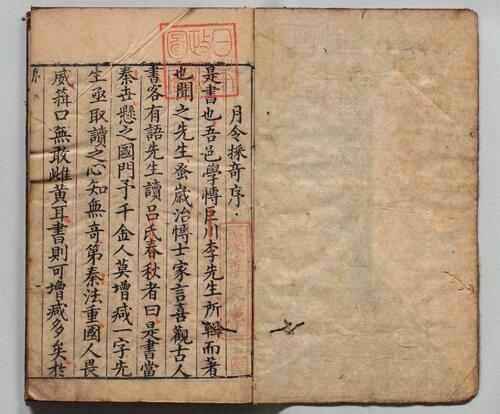 月令採奇序
是書也吾邑學博巨川李先生所輯而著
也聞之先生蚤歲治博士家言喜觀古人
書客有語先生讀呂氏春秋者曰是書當
秦世懸之國門予千金人莫增减一字先
生亟取讀之心知無奇第秦法重國人畏
威箝口無敢雌黄耳書則可增减多矣於
序